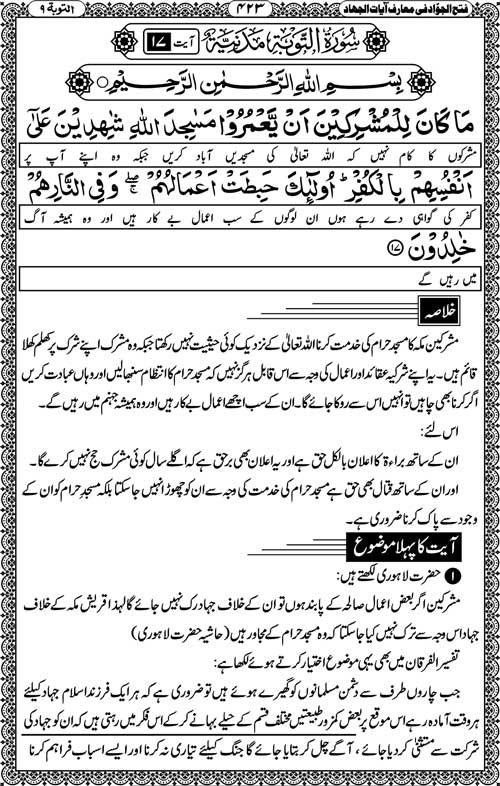 فتح الجوّاد فی معارف آیات الجهاد ۴۲۳ التوبة ۹
سُوۡرَةُ التَّوۡبَةِ مَدَنِیَّةٌ آیت ۱۷
بِسۡمِ اللهِ الرَّحۡمٰنِ الرَّحِیۡمِ
مَا كَانَ لِلۡمُشۡرِكِیۡنَ اَنۡ یَّعۡمُرُوۡا مَسٰجِدَ اللهِ شٰهِدِیۡنَ عَلٰۤی
مشرکوں کا کام نہیں کہ اللہ تعالیٰ کی مسجدیں آباد کریں جبکہ وہ اپنے آپ پر
اَنۡفُسِهِمۡ بِالۡكُفۡرِ ؕ اُولٰٓئِكَ حَبِطَتۡ اَعۡمَالُهُمۡ ۖۚ وَ فِی النَّارِ هُمۡ
کفر کی گواہی دے رہے ہوں ان لوگوں کے سب اعمال بے کار ہیں اور وہ ہمیشہ آگ
خٰلِدُوۡنَ ۱۷
میں رہیں گے
خلاصہ
مشرکین مکہ کا مسجد حرام کی خدمت کرنا اللہ تعالیٰ کے نزدیک کوئی حیثیت نہیں رکھتا جبکہ وہ مشرک اپنے شرک پر کھلم کھلا
قائم ہیں۔ یہ اپنے شرکیہ عقائد اور اعمال کی وجہ سے اس قابل ہرگز نہیں کہ مسجد حرام کا انتظام سنبھالیں اور وہاں عبادت کریں
اگر کرنا بھی چاہیں تو انہیں اس سے روکا جائے گا۔ ان کے سب اچھے اعمال بے کار ہیں اور وہ ہمیشہ جہنم میں رہیں گے۔
اس لئے:
ان کے ساتھ براءۃ کا اعلان بالکل حق ہے اور یہ اعلان بھی برحق ہے کہ اگلے سال کوئی مشرک حج نہیں کرے گا۔
اور ان کے ساتھ قتال بھی حق ہے مسجد حرام کی خدمت کی وجہ سے ان کو چھوڑا نہیں جا سکتا بلکہ مسجد حرام کو ان کے
وجود سے پاک کرنا ضروری ہے۔
آیت کا پہلا موضوع
۱ حضرت لاہوری لکھتے ہیں:
مشرکین اگر بعض اعمال صالحہ کے پابند ہوں تو ان کے خلاف جہاد رک نہیں جائے گا لہٰذا قریش مکہ کے خلاف
جہاد اس وجہ سے ترک نہیں کیا جا سکتا کہ وہ مسجد حرام کے مجاور ہیں (حاشیہ حضرت لاہوری)
تفسیر الفرقان میں بھی یہی موضوع اختیار کرتے ہوئے لکھا ہے:
جب چاروں طرف سے دشمن مسلمانوں کو گھیرے ہوئے ہیں تو ضروری ہے کہ ہر ایک فرزند اسلام جہاد کیلئے
ہر وقت آمادہ رہے اس موقع پر بعض کمزور طبیعتیں مختلف قسم کے حیلے بہانے کر کے اس فکر میں رہتی ہیں کہ ان کو جہاد کی
شرکت سے مستثنیٰ کر دیا جائے، آگے چل کر بتایا جائے گا جنگ کیلئے تیاری نہ کرنا اور ایسے اسباب فراہم کرنا